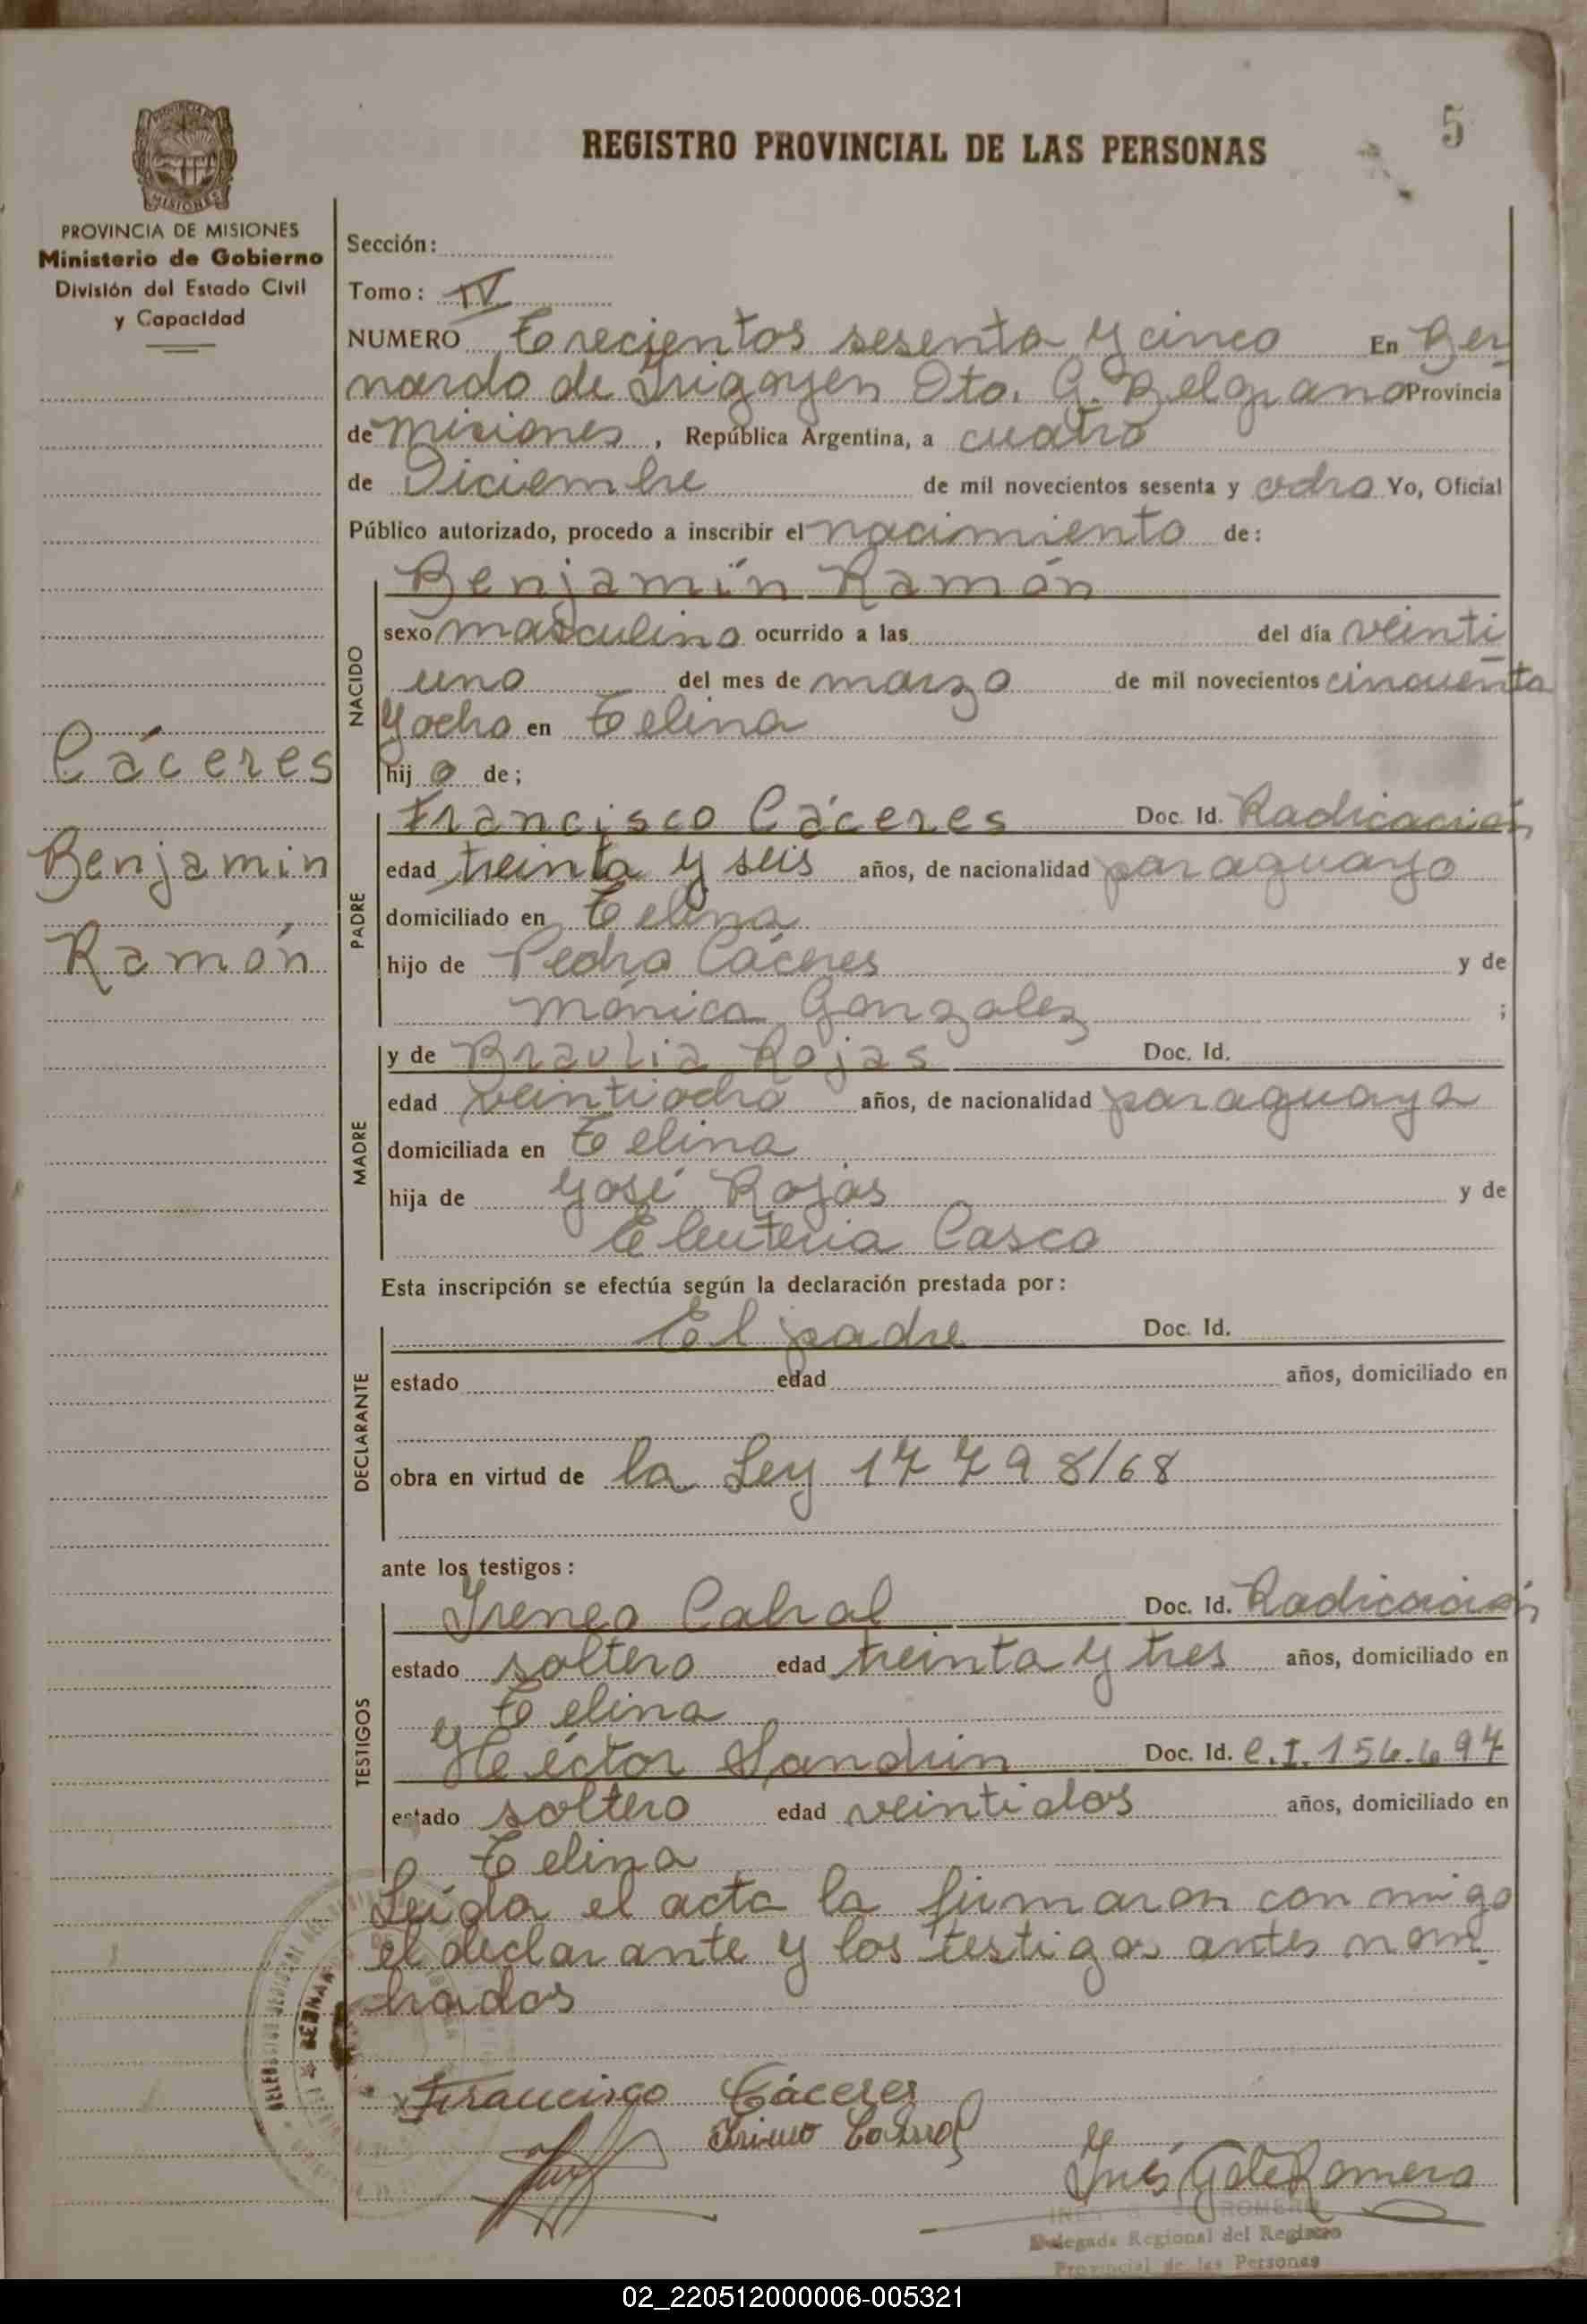 REGISTRO PROVINCIAL DE LAS PERSONAS
5
PROVINCIA DE
MISIONES
PROVINCIA DE MISIONES
Ministerio de Gobierno
División del Estado Civil
y Capacidad
Sección:
Tomo: IV
NUMERO Trecientos sesenta y cinco En Ber
nardo de Irigoyen Dto. G. Belgrano Provincia
de Misiones, República Argentina, a cuatro
de Diciembre de mil novecientos sesenta y ocho Yo, Oficial
Público autorizado, procedo a inscribir el nacimiento de:
NACIDO
Benjamín Ramón
sexo masculino ocurrido a las del día veinti
uno del mes de marzo de mil novecientos cincuenta
y ocho en Celina
hijo de;
Cáceres
Benjamin
Ramón
PADRE
Francisco Cáceres Doc. Id. Radicación
edad treinta y seis años, de nacionalidad paraguayo
domiciliado en Celina
hijo de Pedro Cáceres y de
Mónica Gonzalez ;
MADRE
y de Braulia Rojas Doc. Id.
edad veintiocho años, de nacionalidad paraguaya
domiciliada en Celina
hija de José Rojas y de
Eleuteria Casco
Esta inscripción se efectúa según la declaración prestada por:
DECLARANTE
El padre Doc. Id.
estado edad años, domiciliado en
obra en virtud de la Ley 17798/68
ante los testigos:
TESTIGOS
Ireneo Cabral Doc. Id. Radicación
estado soltero edad treinta y tres años, domiciliado en
Celina
y Héctor Doc. Id. C.I. 154.694
estado soltero edad veintidos años, domiciliado en
Celina
Leída el acta la firmaron con migo
el declarante y los testigos antes nom
brados
Francisco Cáceres
Irineo Cabral
Inés G de Romero
INES G. ROMERO
Delegada Regional del Registro
Provincial de las Personas
02_220512000006-005321